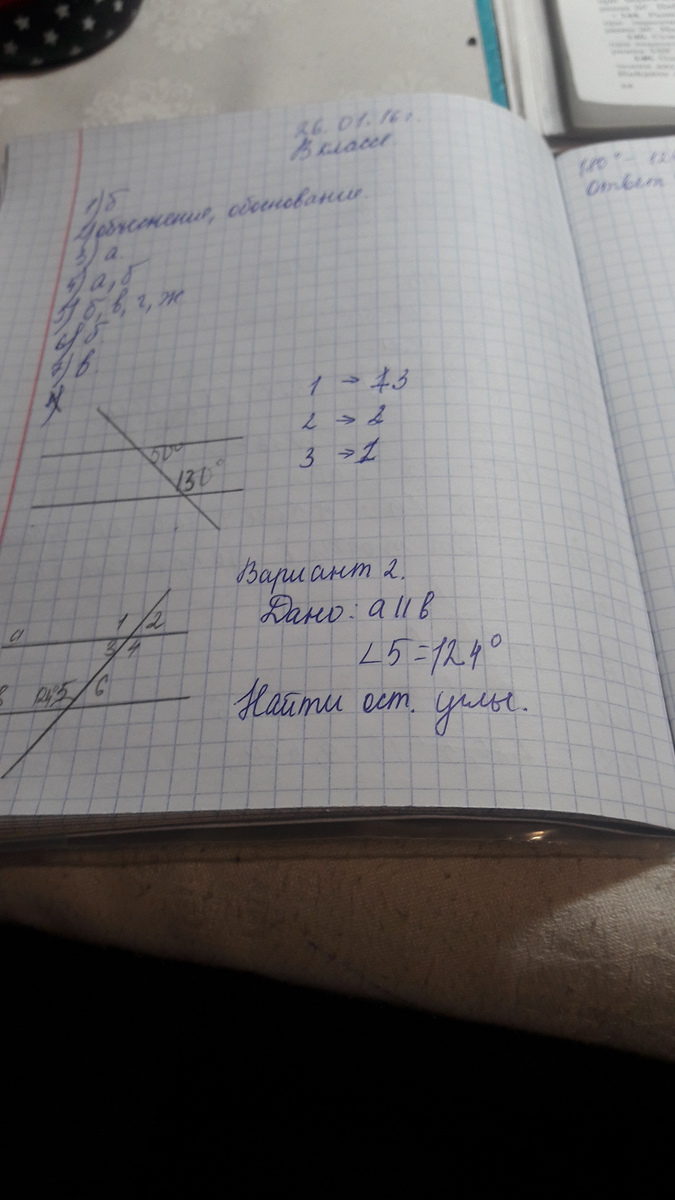 26.01.16г.
В классе
1) б
2) обоснование.
3) а
4) а, б
5) б, в, г, ж
6) б
7) в
1 → 3
2 → 2
3 → 1
50°
130°
Вариант 2.
Дано: a||b
∠5=124°
Найти ост. углы.
1 2
a
3 4
124° 5 6
180° - 124
Ответ